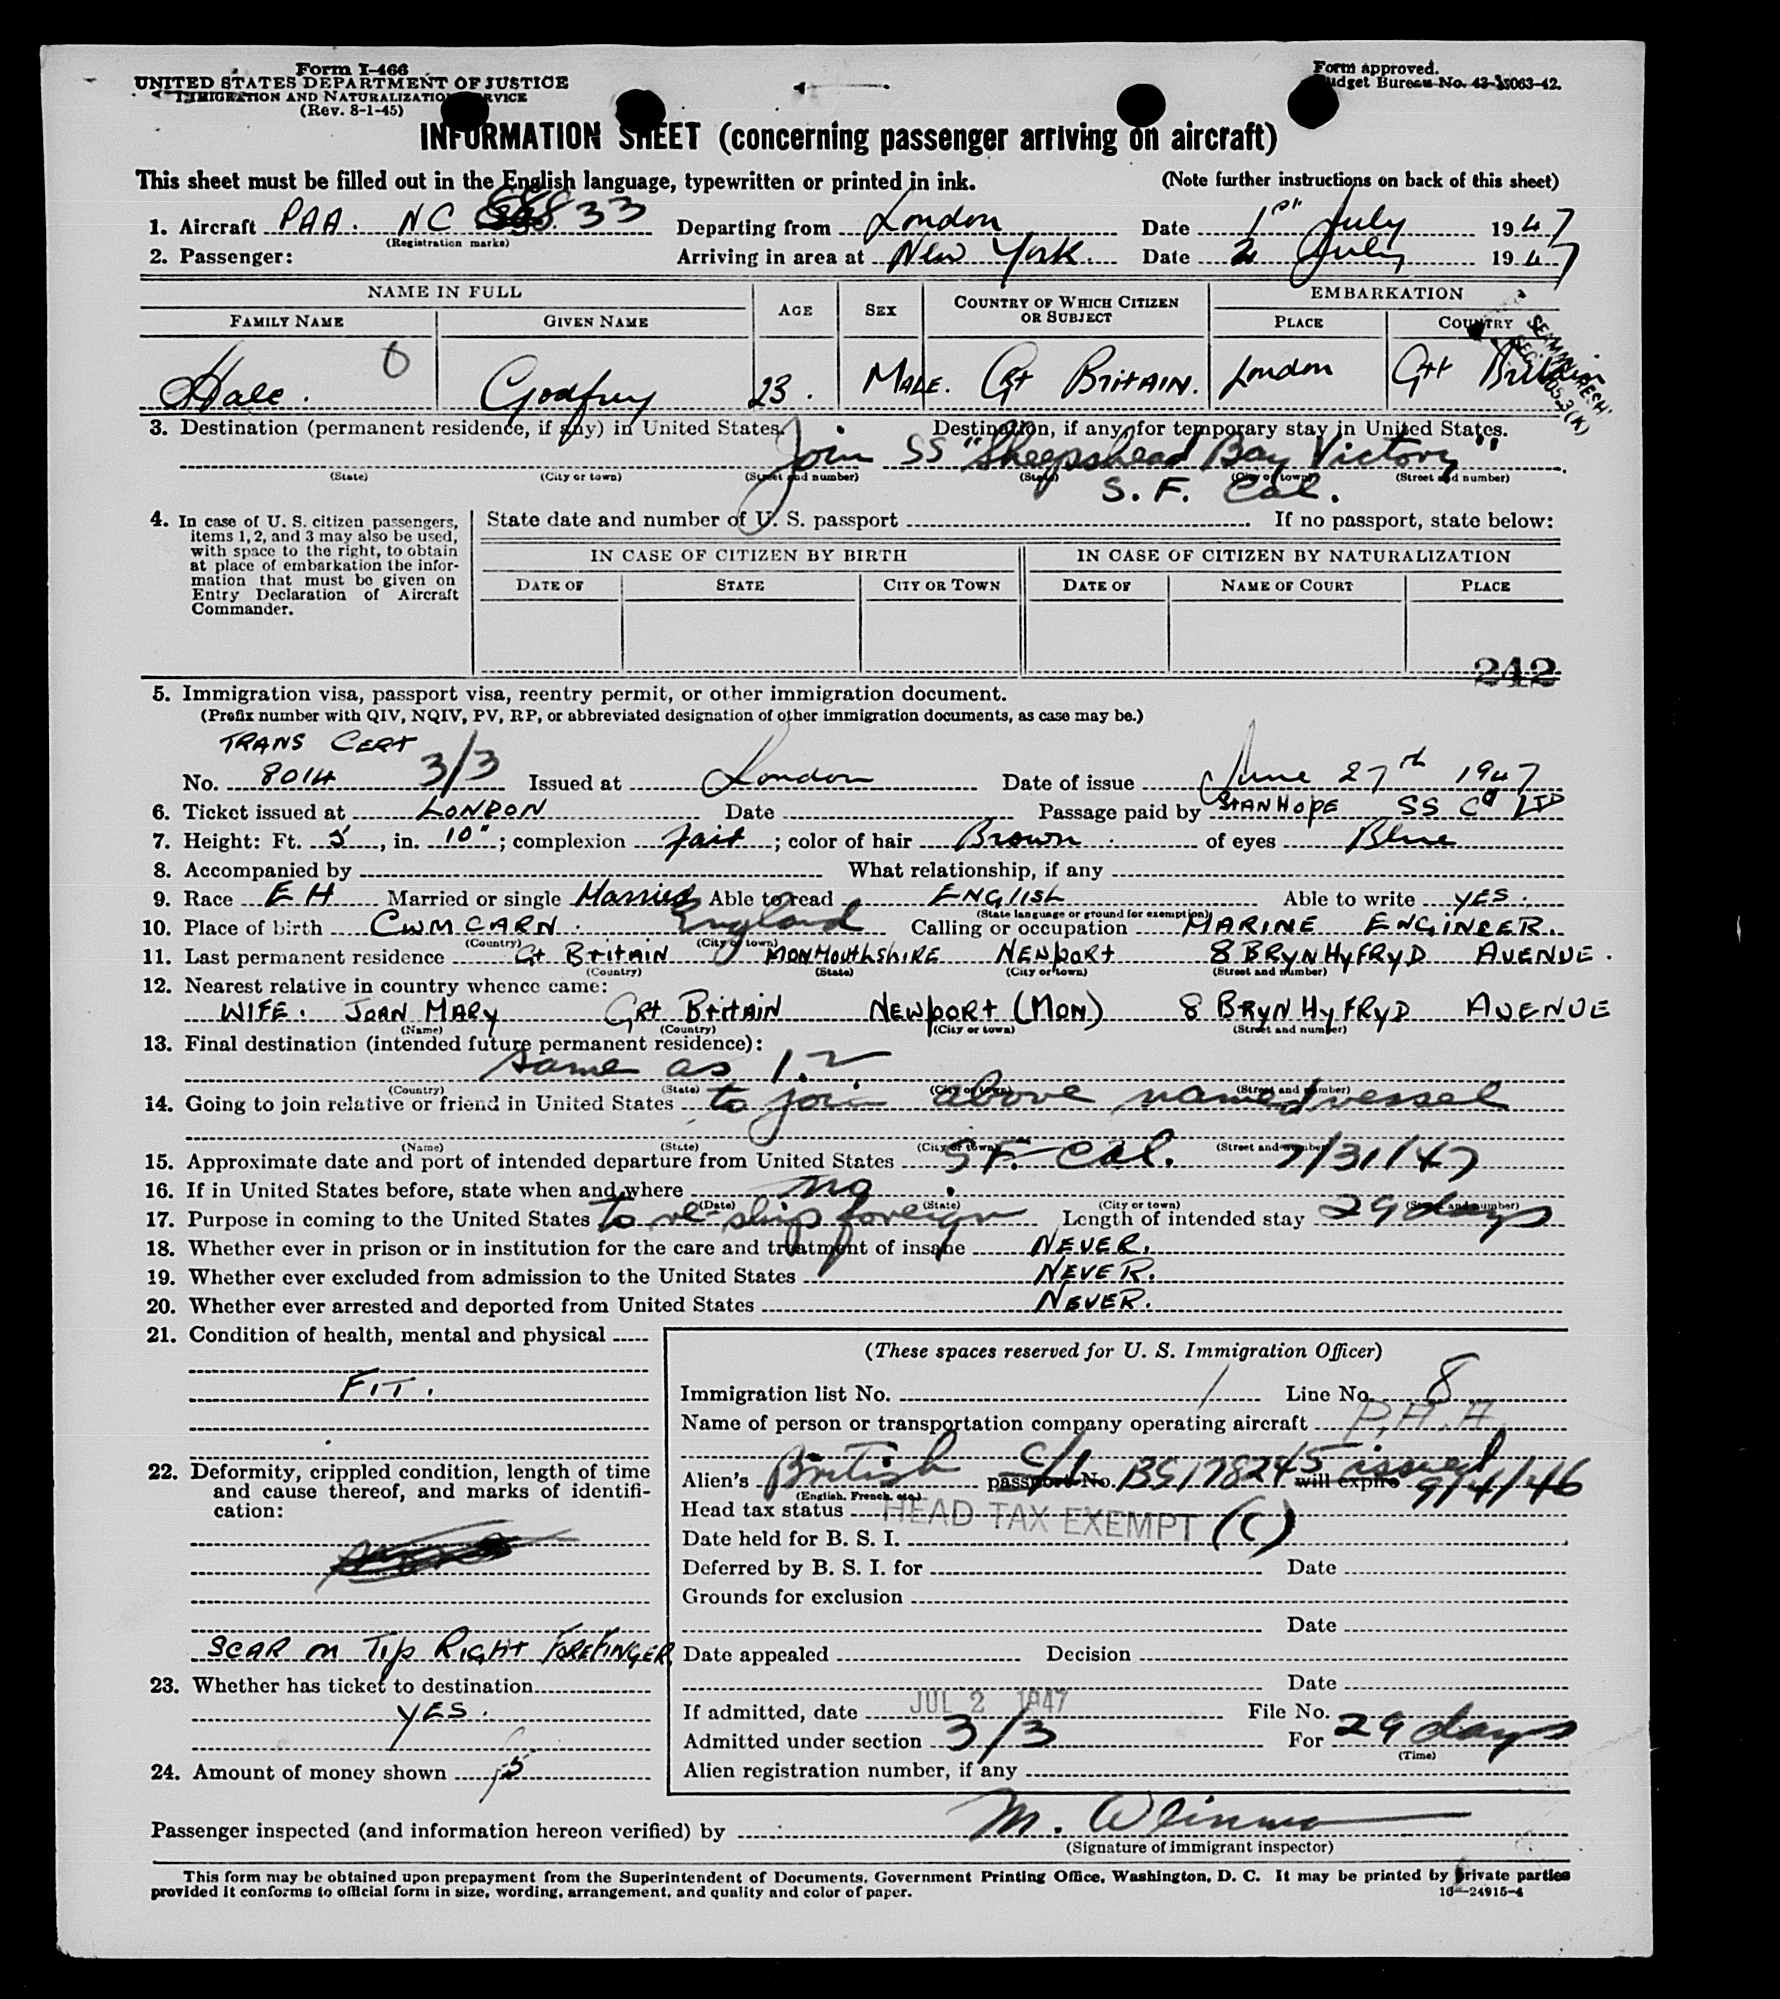 Form I-466
UNITED STATES DEPARTMENT OF JUSTICE
IMMIGRATION AND NATURALIZATION SERVICE
(Rev. 8-1-45)
Form approved.
Budget Bureau No. 43-R063-42.
INFORMATION SHEET (concerning passenger arriving on aircraft)
This sheet must be filled out in the English language, typewritten or printed in ink. (Note further instructions on back of this sheet)
1. Aircraft PAA. NC 88833 Departing from London Date 1st July 1947
(Registration marks)
2. Passenger: Arriving in area at New York. Date 2 July 1947
NAME IN FULL AGE SEX COUNTRY OF WHICH CITIZEN OR SUBJECT EMBARKATION
FAMILY NAME GIVEN NAME PLACE COUNTRY
Hale. Godfrey 23. MALE. Gt BRITAIN. London Gtt Britain
3. Destination (permanent residence, if any) in United States. Destination, if any, for temporary stay in United States.
Join SS "Sheepshead Bay Victory"
(State) (City or town) (Street and number) (State) (City or town) (Street and number)
S. F. Cal.
4. In case of U. S. citizen passengers, items 1, 2, and 3 may also be used, with space to the right, to obtain at place of embarkation the information that must be given on Entry Declaration of Aircraft Commander.
State date and number of U. S. passport If no passport, state below:
IN CASE OF CITIZEN BY BIRTH IN CASE OF CITIZEN BY NATURALIZATION
DATE OF STATE CITY OR TOWN DATE OF NAME OF COURT PLACE
242
5. Immigration visa, passport visa, reentry permit, or other immigration document.
(Prefix number with QIV, NQIV, PV, RP, or abbreviated designation of other immigration documents, as case may be.)
TRANS CERT
No. 8014 3/3 Issued at London Date of issue June 27th 1947
6. Ticket issued at LONDON Date Passage paid by STANHOPE SS Co LTD
7. Height: Ft. 5, in. 10"; complexion fair; color of hair Brown. of eyes Blue
8. Accompanied by What relationship, if any
9. Race EH Married or single Married Able to read ENGLISH Able to write YES.
(State language or ground for exemption)
10. Place of birth CWMCARN. England Calling or occupation MARINE ENGINEER.
(Country) (City or town)
11. Last permanent residence Gt BRITAIN MONMOUTHSHIRE NEWPORT 8 BRYNHYFRYD AVENUE.
(Country) (State) (City or town) (Street and number)
12. Nearest relative in country whence came:
WIFE. JOAN MARY GRT BRITAIN NEWPORT (MON) 8 BRYNHYFRYD AVENUE
(Name) (Country) (City or town) (Street and number)
13. Final destination (intended future permanent residence):
same as 1.2
(Country) (State) (City or town) (Street and number)
14. Going to join relative or friend in United States to join above named vessel
(Name) (State) (City or town) (Street and number)
15. Approximate date and port of intended departure from United States S F. Cal. 7/31/47
16. If in United States before, state when and where no
(Date) (State) (City or town) (Street and number)
17. Purpose in coming to the United States To re-ship foreign Length of intended stay 29 days
18. Whether ever in prison or in institution for the care and treatment of insane NEVER.
19. Whether ever excluded from admission to the United States NEVER.
20. Whether ever arrested and deported from United States NEVER.
21. Condition of health, mental and physical
FIT.
22. Deformity, crippled condition, length of time and cause thereof, and marks of identification:
SCAR on TIP RIGHT FOREFINGER.
23. Whether has ticket to destination
YES.
24. Amount of money shown 5
(These spaces reserved for U. S. Immigration Officer)
Immigration list No. 1 Line No. 8
Name of person or transportation company operating aircraft P.A.A.
Alien's British C/I passport No. BS178245 issued will expire 9/4/46
(English, French, etc.)
Head tax status HEAD TAX EXEMPT (C)
Date held for B. S. I.
Deferred by B. S. I. for Date
Grounds for exclusion
Date
Date appealed Decision
Date
If admitted, date JUL 2 1947 File No.
Admitted under section 3/3 For 29 days
(Time)
Alien registration number, if any
Passenger inspected (and information hereon verified) by M.
(Signature of immigrant inspector)
This form may be obtained upon prepayment from the Superintendent of Documents, Government Printing Office, Washington, D. C. It may be printed by private parties
provided it conforms to official form in size, wording, arrangement, and quality and color of paper. 16—24915-4